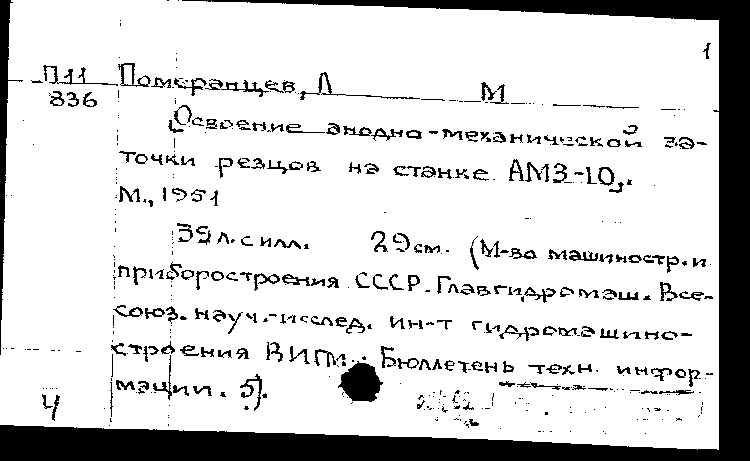 1
П11 Померанцев, Л М
836
Освоение анодно-механической за-
точки резцов на станке АМЗ-10,.
М., 1951
39 л. с илл. 29 см. (М-во машиностр. и
приборостроения СССР. Главгидромаш. Все-
союз. науч.-исслед. ин-т гидромашино-
строения ВИГМ. Бюллетень техн. инфор-
мации. 5).
Ч